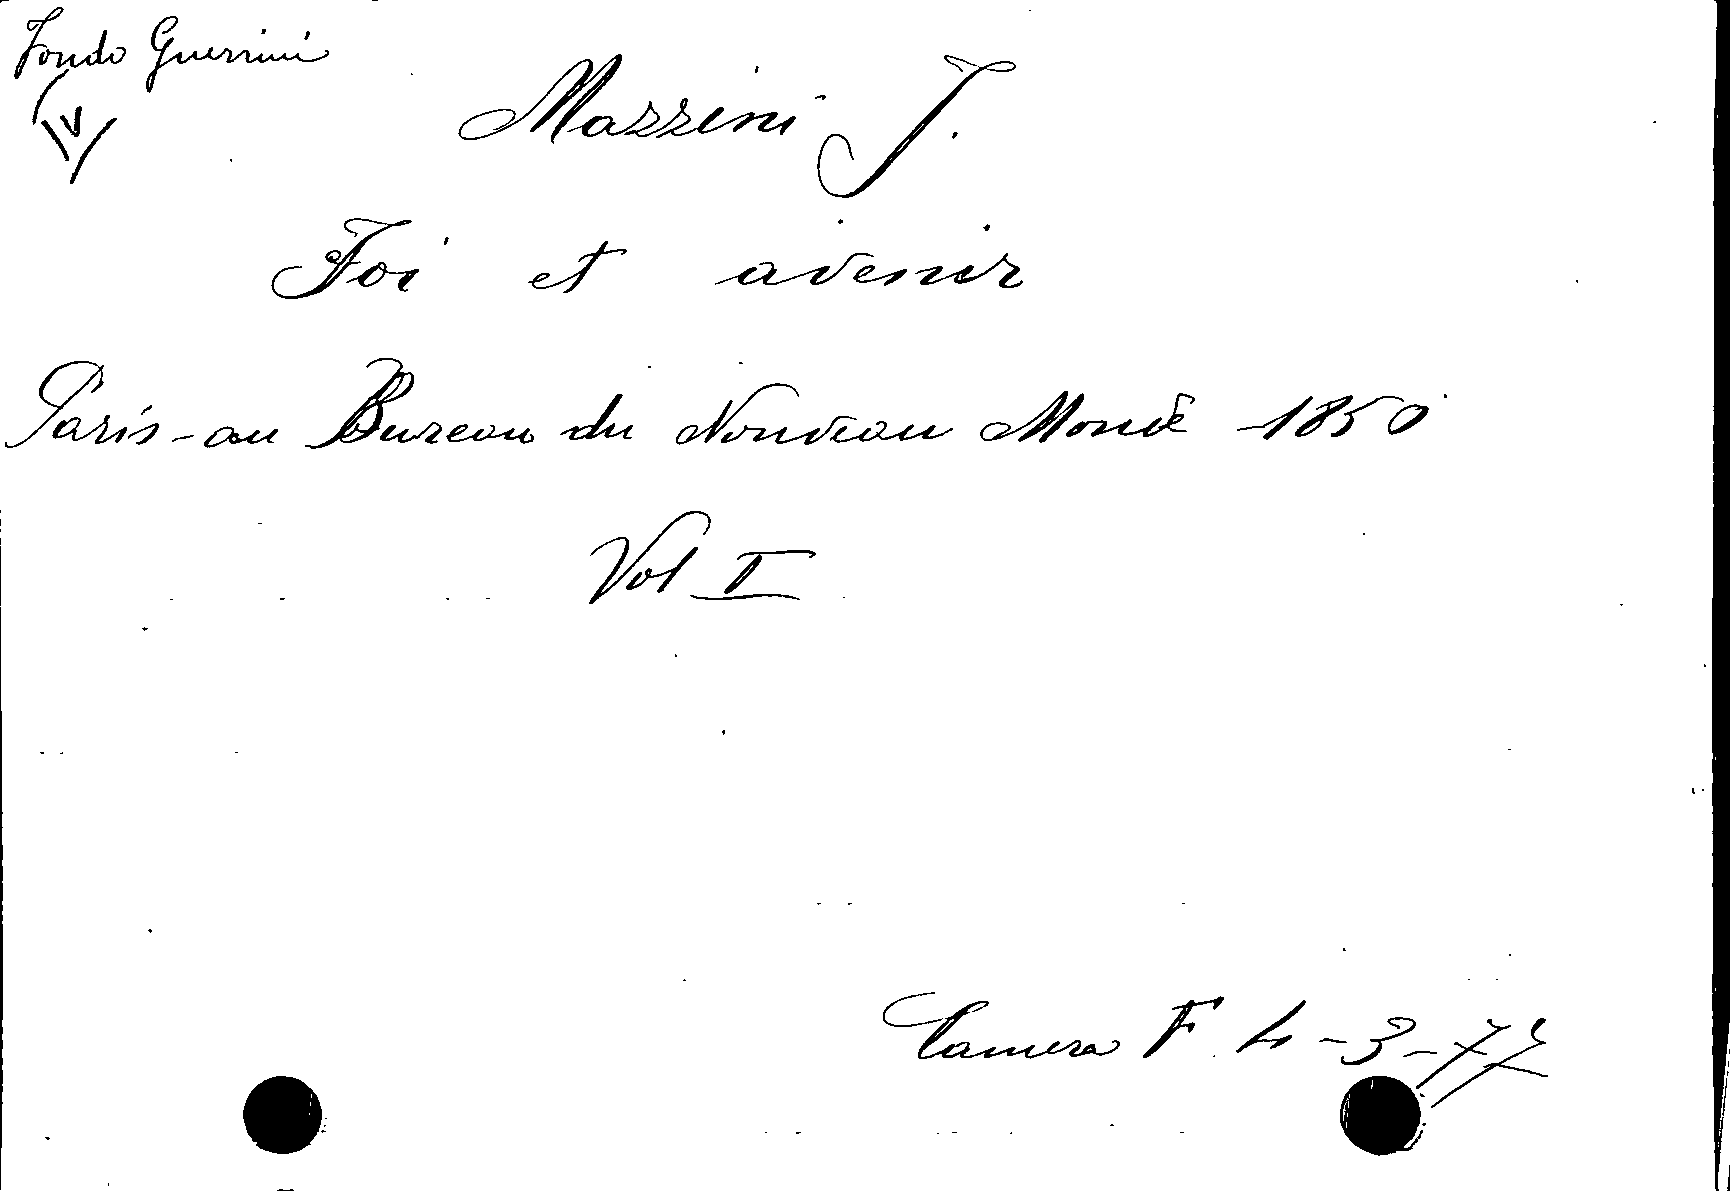 Fondo Guerrini
(IV)
Mazzini J.
Foi et avenir
Paris - au Bureau du Nouveau Monde - 1850
Vol I
Camera F. 4 - 3 - 77